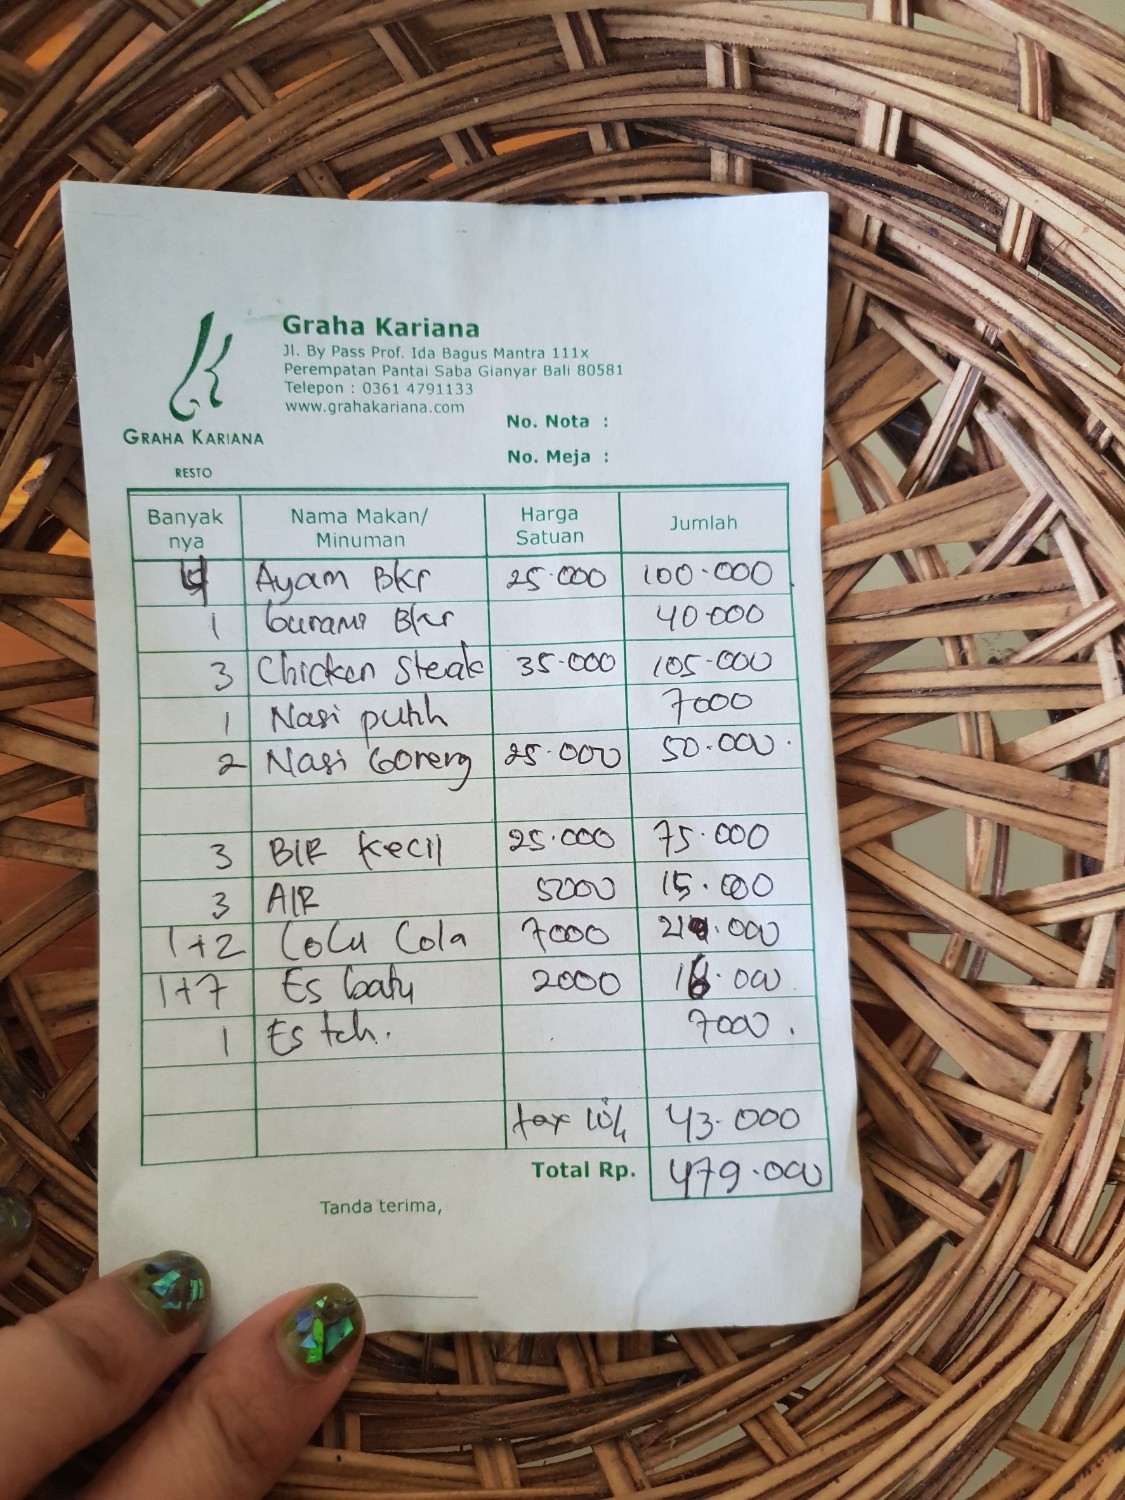 Graha Kariana
Jl. By Pass Prof. Ida Bagus Mantra 111x
Perempatan Pantai Saba Gianyar Bali 80581
Telepon : 0361 4791133
www.grahakariana.com
GRAHA KARIANA
RESTO
No. Nota :
No. Meja :
Banyak nya Nama Makan/ Minuman Harga Satuan Jumlah
4 Ayam Bkr 25.000 100.000
1 Gurami Bkr 40.000
3 Chicken Steak 35.000 105.000
1 Nasi putih 7000
2 Nasi Goreng 25.000 50.000
3 BIR kecil 25.000 75.000
3 AIR 5000 15.000
1+2 CoCa Cola 7000 21.000
1+7 Es batu 2000 16.000
1 Es teh. 7000
tax 10% 43.000
Total Rp. 479.000
Tanda terima,